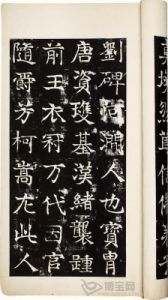 劉碑澗人也寶胄
唐資雙基漢緒襲踵
前王衣万代因官
隨爵芳柯嵩此人
博宝网